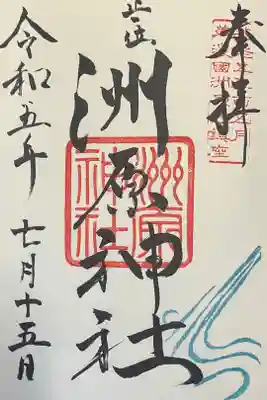 奉拝
正一位
洲原神社
洲原
神社
令和五年
七月十五日